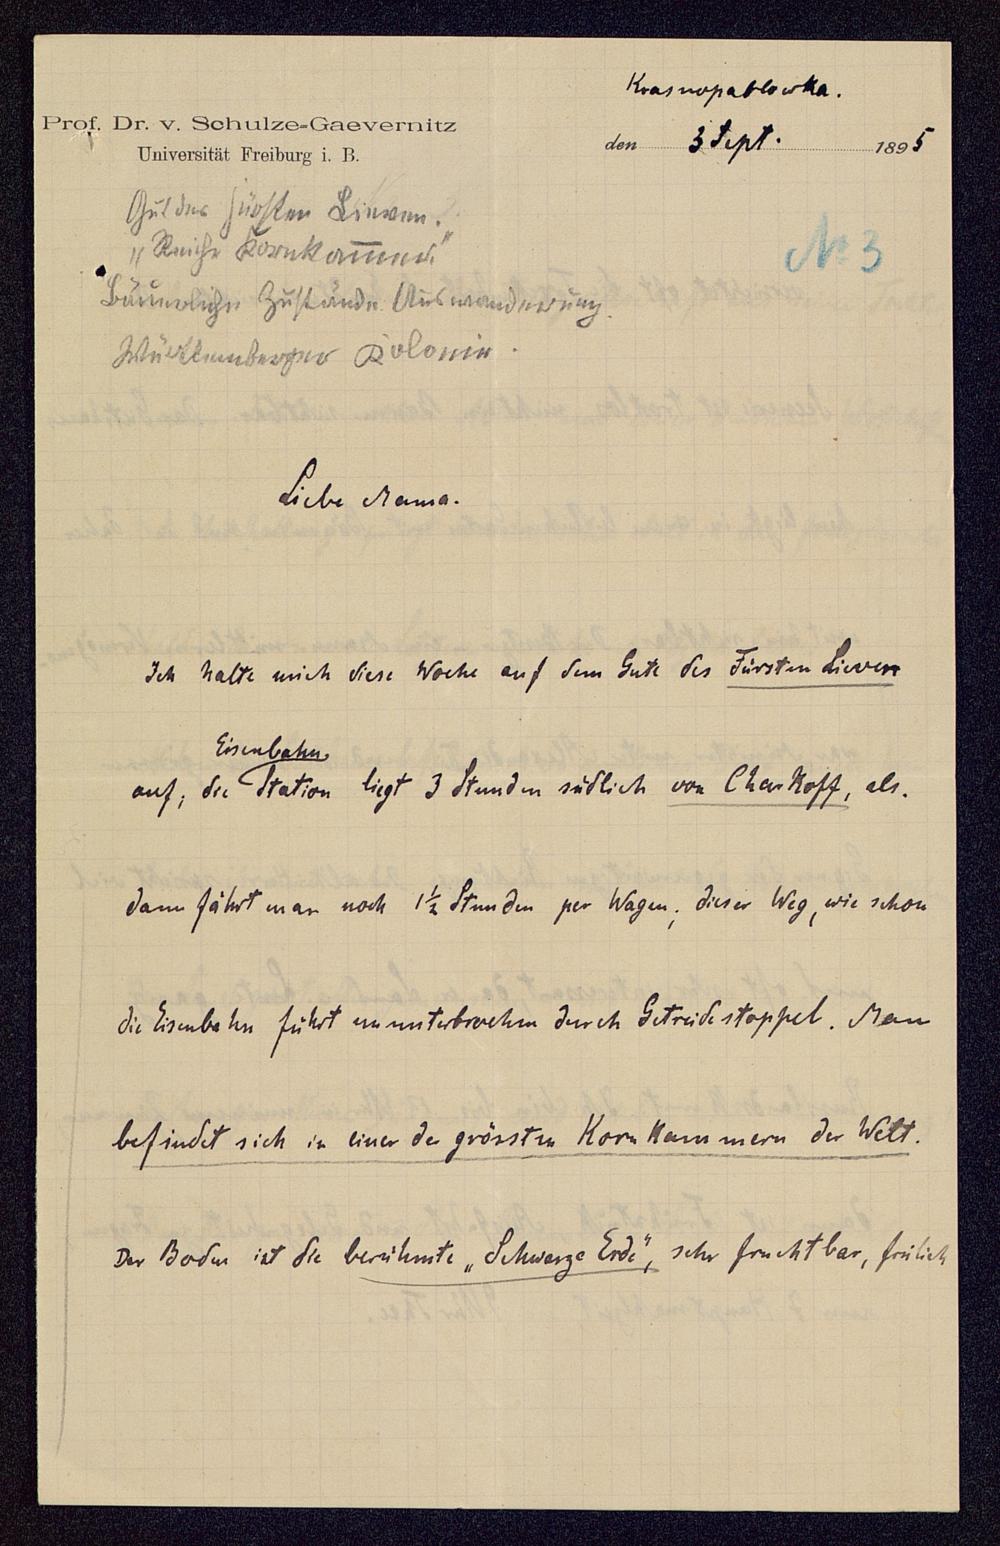 Krasnopablowka.
Prof. Dr. v. Schulze-Gaevernitz
Universität Freiburg i. B.
den 3 Sept. 1895
Gut des Fürsten Liewen.
"Reiche Kornkammer"
Bäuerliche Zustände Auswanderung.
Württemberger Kolonie.
No 3
Liebe Mama.
Ich halte mich diese Woche auf dem Gute des Fürsten Lieven
Eisenbahn
auf; die Station liegt 3 Stunden südlich von Charkoff, als.
dann fährt man noch 1½ Stunden per Wagen; dieser Weg, wie schon
die Eisenbahn führt ununterbrochen durch Getreidestoppel. Man
befindet sich in einer der grössten Kornkammern der Welt.
Der Boden ist die berühmte „Schwarze Erde", sehr fruchtbar, freilich